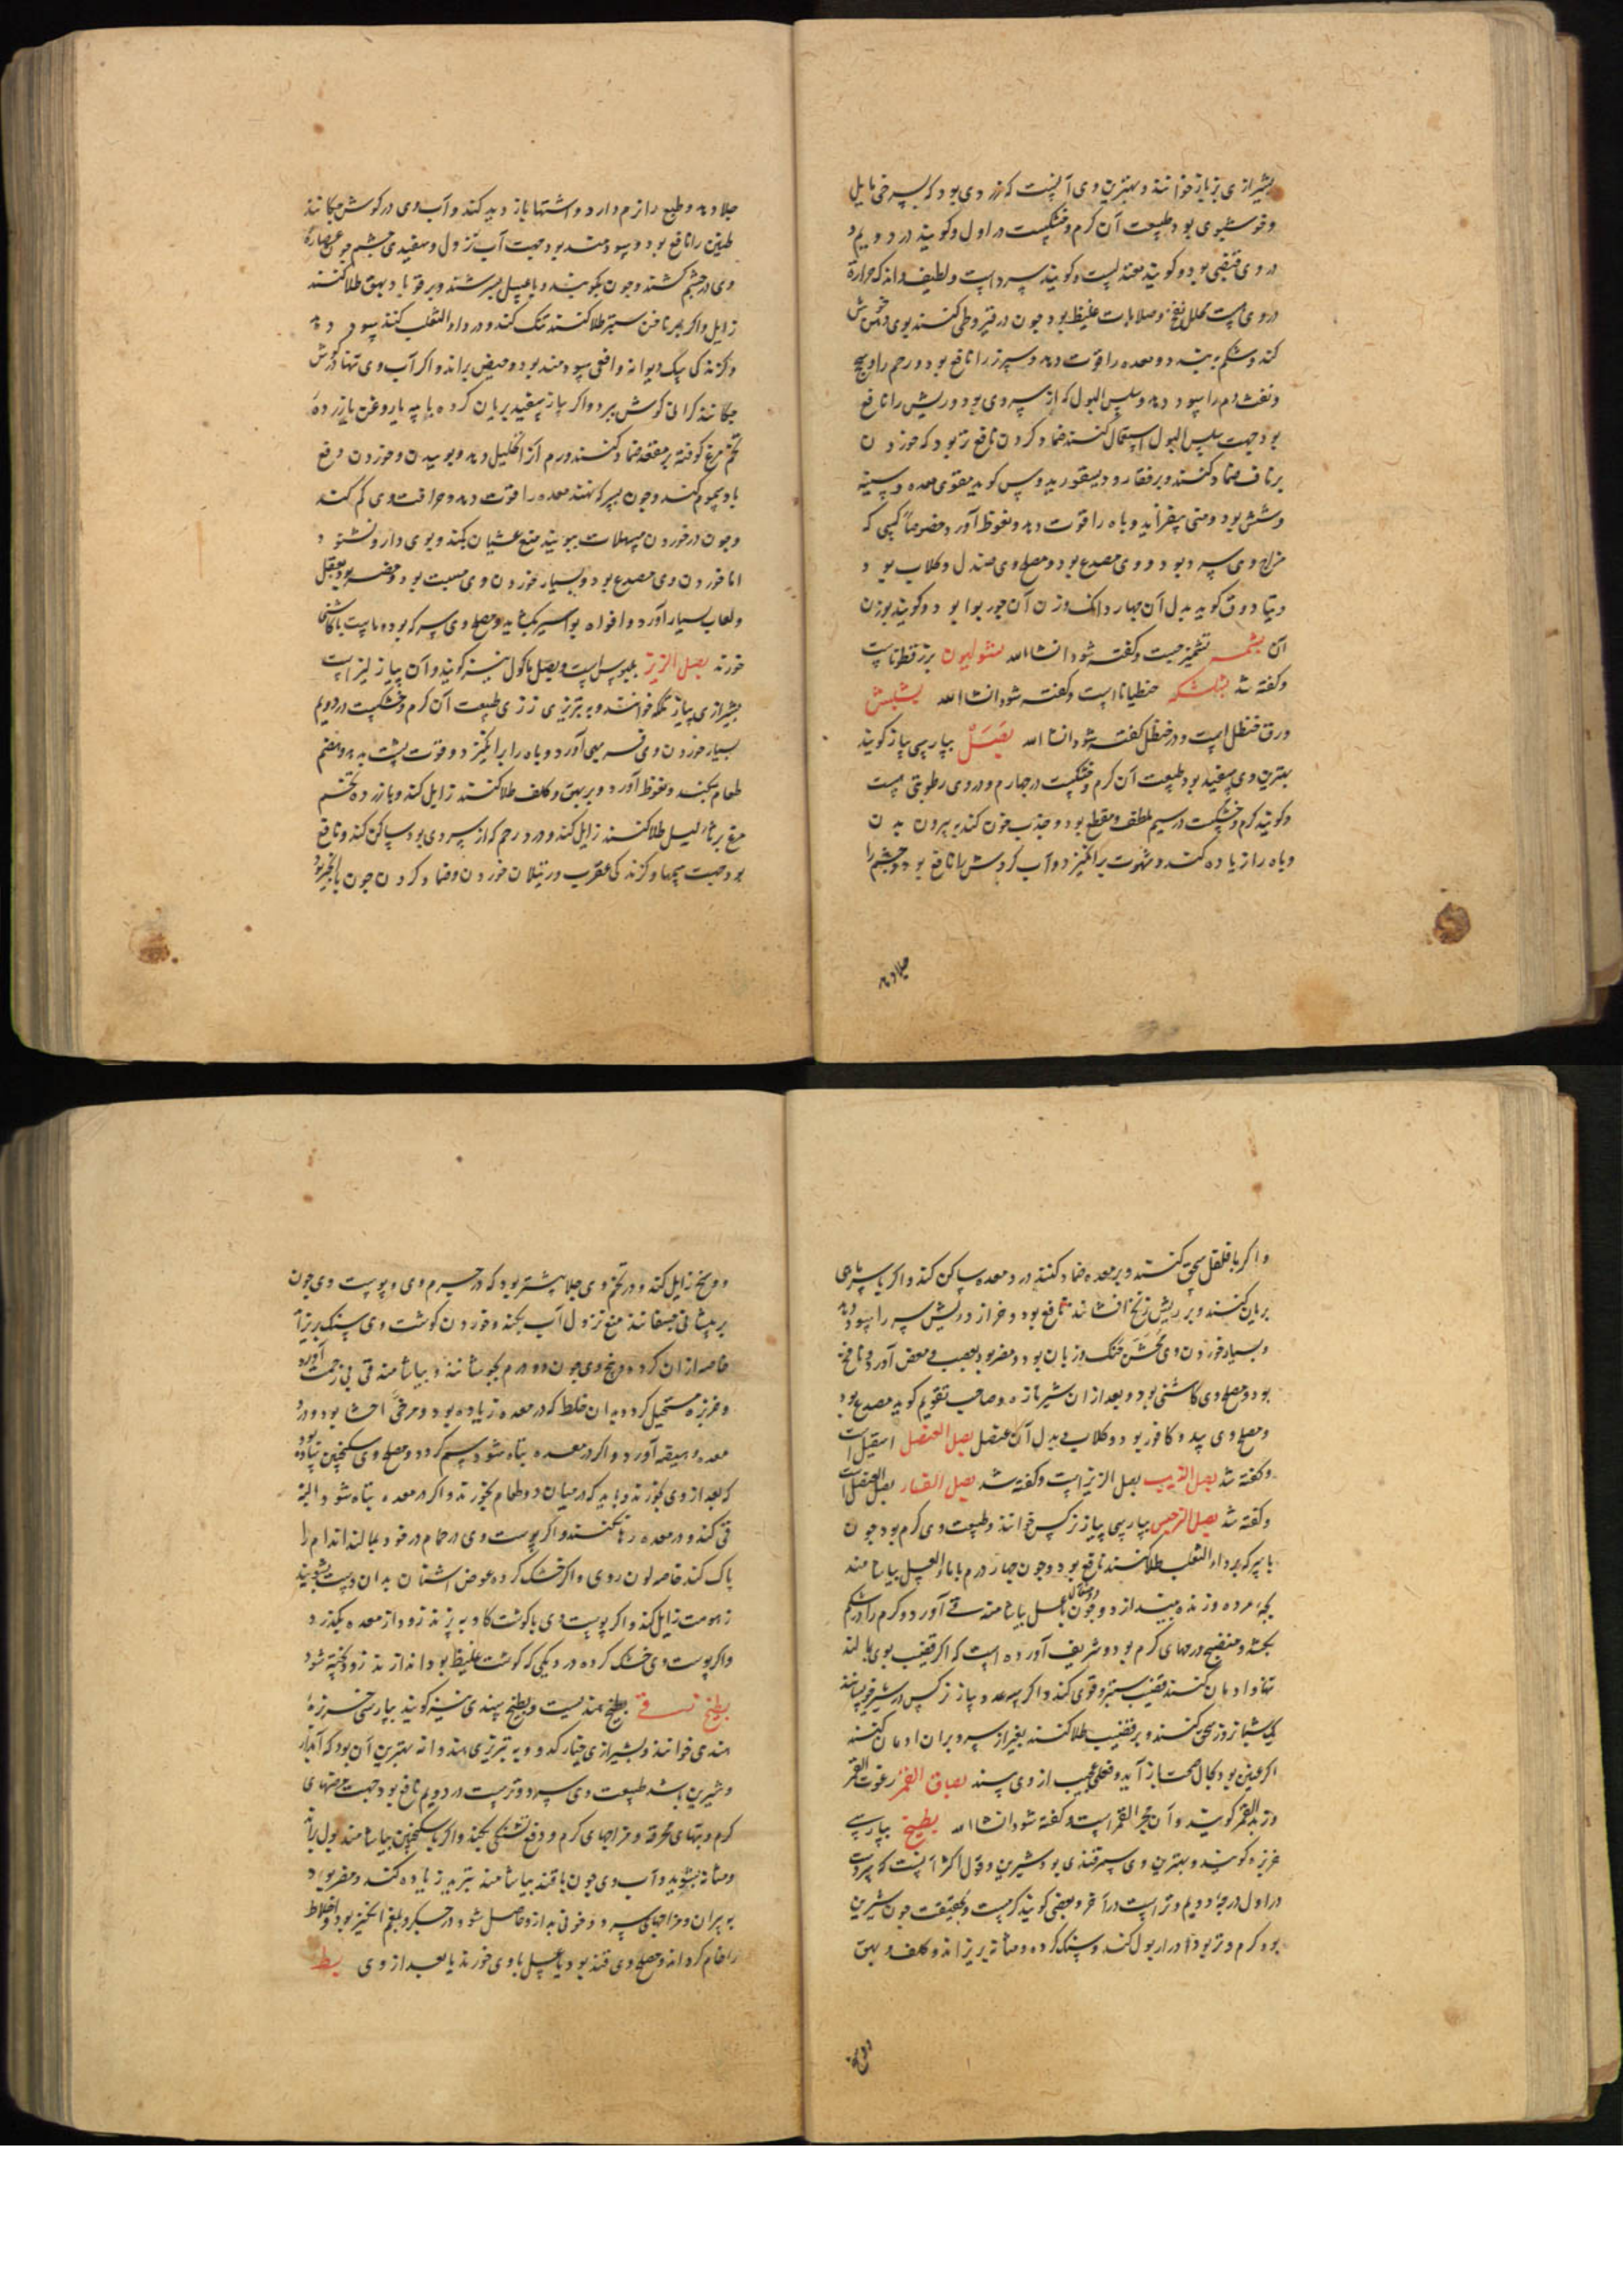 بشیرازی بزباز خوانند و بهترین وی آنست که زردی بود که بسرخی مایل
و خوشبوی بود و طبیعت آن کرم و خشکست در اول و کویند در دویم و
در وی قبضی بود و کویند معتدلست و کویند سرد است و لطیف و اندک حرارة
در وی است محلل نفخ و صلابات غلیظ بود و چون در قیروطی کنند بوی دهن خوش
کند و شکم ببندد و معده را قوت دهد و سپرز را نافع بود و رحم را و سحج
و نفث دم را سود دهد و سلس البول که از سردی بود و ریش را نافع
بود جهت سلس البول استعمال کنند ضماد کردن نافع تر بود که خوردن
بر ناف ضماد کنند و بر فقار و دیسقوریدوس کوید مقوی معده و سینه
و شش بود و منی بیفزاید و باه را قوت دهد و نعوظ آورد خصوصا کسی که
مزاج وی سرد بود و وی مصدع بود و مصلح وی صندل و کلاب بود
و بیادوق کوید بدل آن چهار دانک وزن آن جوربوا بود و کویند بوزن
آن بشمه تشمیزجست و کفته شود انشاالله بسولیون بزرقطوناست
و کفته شد بشلشکه جنطیاناست و کفته شود انشاالله بشبش
ورق حنظل است و در حنظل کفته شود انشاالله بصل بپارسی پیاز کویند
بهترین وی سفید بود طبیعت آن کرم و خشکست در چهارم و در وی رطوبتی هست
و کویند کرم و خشکست در سیم ملطف و مقطع بود و جذب خون کند به بیرون بدن
و باه را زیاده کند و شهوت برانکیزد و آب کردش را نافع بود و چشم را
جلا دهد
جلا دهد و طبع را نرم دارد و اشتها باز دید کند و آب وی در کوش چکانند
طنین را نافع بود و سودمند بود جهت آب نزول و سفیدی چشم چون عصارۀ
وی در چشم کشند و چون بکوبند و با عسل بسرشند و بر قوبا و بهق طلا کنند
زایل و اکر بر ناخن ستبر طلا کنند تنک کند و در داء الثعلب کنند سود دهد
و کزندکی سک دیوانه و افعی سودمند بود و حیض براند و اکر آب وی تنها در کوش
چکانند کرانی کوش ببرد و اکر پیاز سفید بریان کرده با پیه یا روغن یا زردۀ
تخم مرغ کوفته بر مقعد ضماد کنند ورم آنرا تحلیل دهد و بوییدن و خوردن دفع
باد سموم کند و چون بسرکه نهند معده را قوت دهد و حرافت وی کم کند
و چون در خوردن مسهلات ببویند منع غثیان بکند و بوی دارو نشنود
اما خوردن وی مصدع بود و بسیار خوردن وی مسبت بود و مضر بود بعقل
و لعاب بسیار آورد و افواه بواسیر بکشاید و مصلح وی سرکه بود و ماست یا کاسنی
خورند بصل الزیز بلبوس است و بصل ماکول نیز کویند و آن پیاز لیز است
بشیرازی پیاز تلکه خوانند و به تبریزی ززی طبیعت آن کرم و خشکست در دویم
بسیار خوردن وی قی آورد و باه را برانکیزد و قوت پشت بدهد و هضم
طعام بکند و نعوظ آورد و بر بهق و کلف طلا کنند زایل کند و با زردۀ تخم
مرغ بر ثآلیل طلا کنند زایل کند و درد رحم که از سردی بود ساکن کند و نافع
بود جهت سمها و کزندکی عقرب و رتیلان خوردن و ضماد کردن چون با انجیر بود
و اکر با فلفل سحق کنند و بر معده ضماد کنند درد معده ساکن کند و اکر با سرماهی
بریان کنند و بر ریش زنخ افشانند نافع بود و خراز و ریش سر را سود دهد
و بسیار خوردن وی مخشن حنک و زبان بود و مضر بود بعصب و مغص آورد و نافخ
بود و مصلح وی کاسنی بود و بعد از آن شیر تازه و صاحب تقویم کوید مصدع بود
و مصلح وی بید و کافور بود و کلاب و بدل آن عنصل بصل العنصل اسقیل است
و کفته شد بصل الذیب بصل الزیز است و کفته شد بصل الفار بصل العنصل است
و کفته شد بصل النرجس بپارسی پیاز نرکس خوانند و طبیعت وی کرم بود چون
با سرکه بر داء الثعلب طلا کنند نافع بود و چون چهار درم با ماء العسل بیاشامند
بچۀ مرده و زنده بیندازد و چون دو مثقال با عسل بیاشامند قی آورد و کرم را در شکم
بکشد و منضج ورمهای کرم بود و شریف آورده است که اکر قضیب بوی بمالند
تنها و ادمان کنند قضیب ستبر و قوی کند و اکر سه عدد پیاز نرکس در شیر خویسانند
یک شبانروز سحق کنند و بر قضیب طلا کنند بغیر از سر و بر آن ادمان کنند
اکر عنین بود بحال صحت باز آید و فعلی عجیب از وی بینند بصاق القمر رغوت القمر
و زبد القمر کویند و آن حجر القمر است و کفته شود انشاالله بطیخ بپارسی
خربزه کویند و بهترین وی سمرقندی بود شیرین و قول اکثر آنست که سردست
در اول درجۀ دویم و تر است در آخر و بعضی کویند کرمست و بحقیقت چون شیرین
بود کرم و تر بود ادرار بول کند و سنک کرده و مثانه بریزاند و کلف و بهق
و وسخ
و وسخ زایل کند و در تخم وی جلا بیشتر بود که در جرم وی و پوست وی چون
بر پیشانی چسفانند منع نزول آب بکند و خوردن کوشت وی سنک بریزاند
خاصه از آن کرده و بیخ وی چون دو درم بجوشانند و بیاشامند قی بی زحمت آورد
و خربزه مستحیل کردد بدان خلط که در معده زیاده بود و مرخی احشا بود و درد
معده و هیضه آورد و اکر در معده تباه شود سم کردد و مصلح وی سکنجبین ساده بود
که بعد از وی بخورند و باید که در میان دو طعام بخورند و اکر در معده تباه شود البته
قی کند و در معده رها نکنند و اکر پوست وی در حمام در خود بمالند اندام را
پاک کند خاصه لون روی و اکر خشک کرده عوض اشنان بدان دست بشویند
زهومت زایل کند و اکر پوست وی با کوشت کاو بپزند زود از معده بکذرد
و اکر پوست وی خشک کرده در دیکی که کوشت غلیظ بود اندازند زود پخته شود
بطیخ رقی بطیخ هندیست و بطیخ سندی نیز کویند بپارسی خربزۀ
هندی خوانند و بشیرازی خیار کدو و به تبریزی هندوانه بهترین آن بود که آبدار
و شیرین باشد طبیعت وی سرد و ترست در دویم نافع بود جهت مرضهای
کرم و تبهای محرقه و مزاجهای کرم و دفع تشنکی بکند و اکر با سکنجبین بیاشامند بول براند
و مثانه بشوید و آب وی چون با قند بیاشامند تبرید زیاده کند و مضر بود
به پیران و مزاجهای سرد و خونی بد از و حاصل شود در جکر و بلغم انکیز بود و اخلاط
را خام کرداند و مصلح وی قند بود یا عسل با وی خورند یا بعد از وی بط